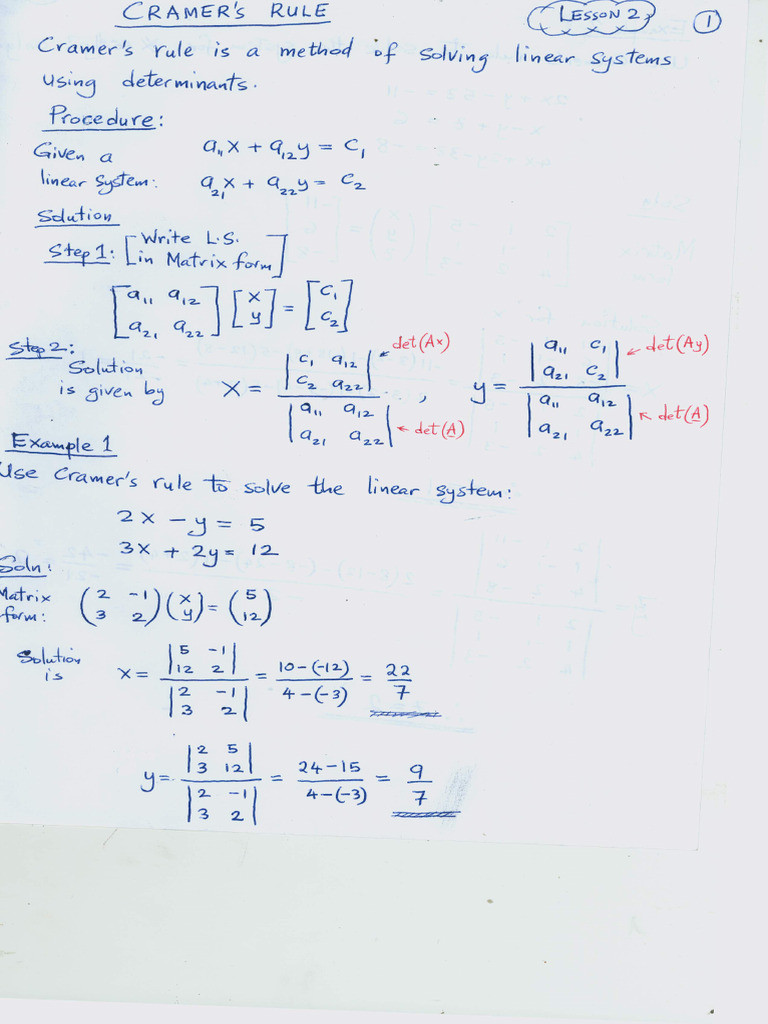 CRAMER'S RULE
LESSON 2
1
Cramer's rule is a method of solving linear systems
using determinants.
Procedure:
Given a linear system:
a₁₁x + a₁₂y = c₁
a₂₁x + a₂₂y = c₂
Solution
Step 1: [Write L.S. in Matrix form]
[a₁₁ a₁₂; a₂₁ a₂₂] [x; y] = [c₁; c₂]
Step 2:
Solution is given by
x = |c₁ a₁₂; c₂ a₂₂| ← det(Ax) / |a₁₁ a₁₂; a₂₁ a₂₂| ← det(A) , y = |a₁₁ c₁; a₂₁ c₂| ← det(Ay) / |a₁₁ a₁₂; a₂₁ a₂₂| ← det(A)
Example 1
Use Cramer's rule to solve the linear system:
2x - y = 5
3x + 2y = 12
Soln:
Matrix form: (2 -1; 3 2) (x; y) = (5; 12)
Solution is x = |5 -1; 12 2| / |2 -1; 3 2| = 10-(-12) / 4-(-3) = 22/7
y = |2 5; 3 12| / |2 -1; 3 2| = 24-15 / 4-(-3) = 9/7